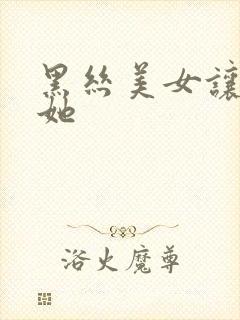 黑丝美女讓
她
浴火魔尊